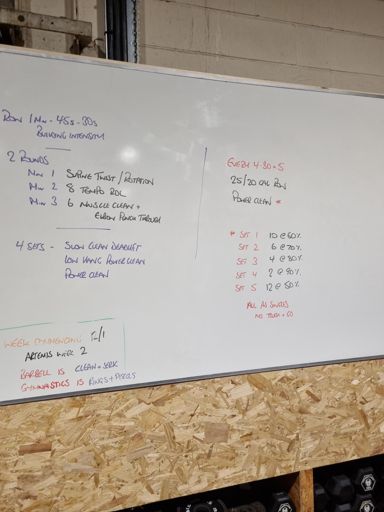 ROW 1 MIN - 45s - 30s
BUILDING INTENSITY
2 ROUNDS
MIN 1 SUPINE TWIST / ROTATION
MIN 2 8 TEMPO RDL
MIN 3 6 MUSCLE CLEAN +
ELBOW PUNCH THROUGH
4 SETS - SLOW CLEAN DEADLIFT
LOW HANG POWER CLEAN
POWER CLEAN
WEEK COMMENCING
ARTEMIS WEEK 2
BARBELL IS CLEAN + JERK
GYMNASTICS IS RINGS +
EVERY 4.30 x 5
25/20 CAL ROW
POWER CLEAN *
* SET 1 10 @ 60%
SET 2 6 @ 70%
SET 3 4 @ 80%
SET 4 2 @ 90%
SET 5 12 @ 50%
ALL AS SINGLES
NO TOUCH + GO